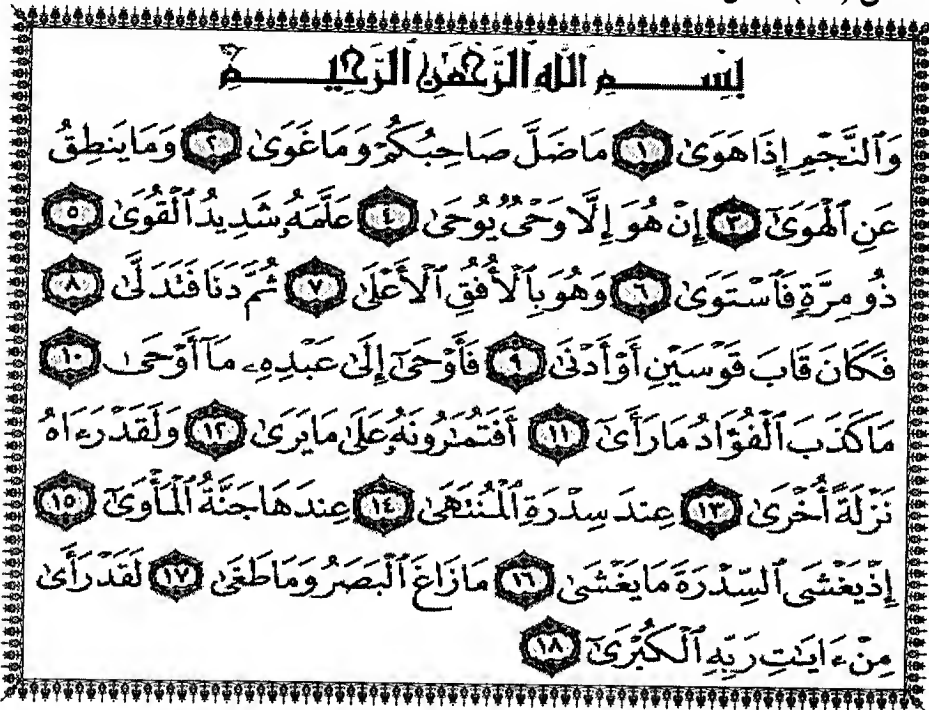 بِسْمِ ٱللَّهِ ٱلرَّحْمَٰنِ ٱلرَّحِيمِ
وَٱلنَّجْمِ إِذَا هَوَىٰ ١ مَا ضَلَّ صَاحِبُكُمْ وَمَا غَوَىٰ ٢ وَمَا يَنطِقُ
عَنِ ٱلْهَوَىٰٓ ٣ إِنْ هُوَ إِلَّا وَحْىٌ يُوحَىٰ ٤ عَلَّمَهُۥ شَدِيدُ ٱلْقُوَىٰ ٥
ذُو مِرَّةٍ فَٱسْتَوَىٰ ٦ وَهُوَ بِٱلْأُفُقِ ٱلْأَعْلَىٰ ٧ ثُمَّ دَنَا فَتَدَلَّىٰ ٨
فَكَانَ قَابَ قَوْسَيْنِ أَوْ أَدْنَىٰ ٩ فَأَوْحَىٰٓ إِلَىٰ عَبْدِهِۦ مَآ أَوْحَىٰ ١٠
مَا كَذَبَ ٱلْفُؤَادُ مَا رَأَىٰٓ ١١ أَفَتُمَٰرُونَهُۥ عَلَىٰ مَا يَرَىٰ ١٢ وَلَقَدْ رَءَاهُ
نَزْلَةً أُخْرَىٰ ١٣ عِندَ سِدْرَةِ ٱلْمُنتَهَىٰ ١٤ عِندَهَا جَنَّةُ ٱلْمَأْوَىٰٓ ١٥
إِذْ يَغْشَى ٱلسِّدْرَةَ مَا يَغْشَىٰ ١٦ مَا زَاغَ ٱلْبَصَرُ وَمَا طَغَىٰ ١٧ لَقَدْ رَأَىٰ
مِنْ ءَايَٰتِ رَبِّهِ ٱلْكُبْرَىٰٓ ١٨